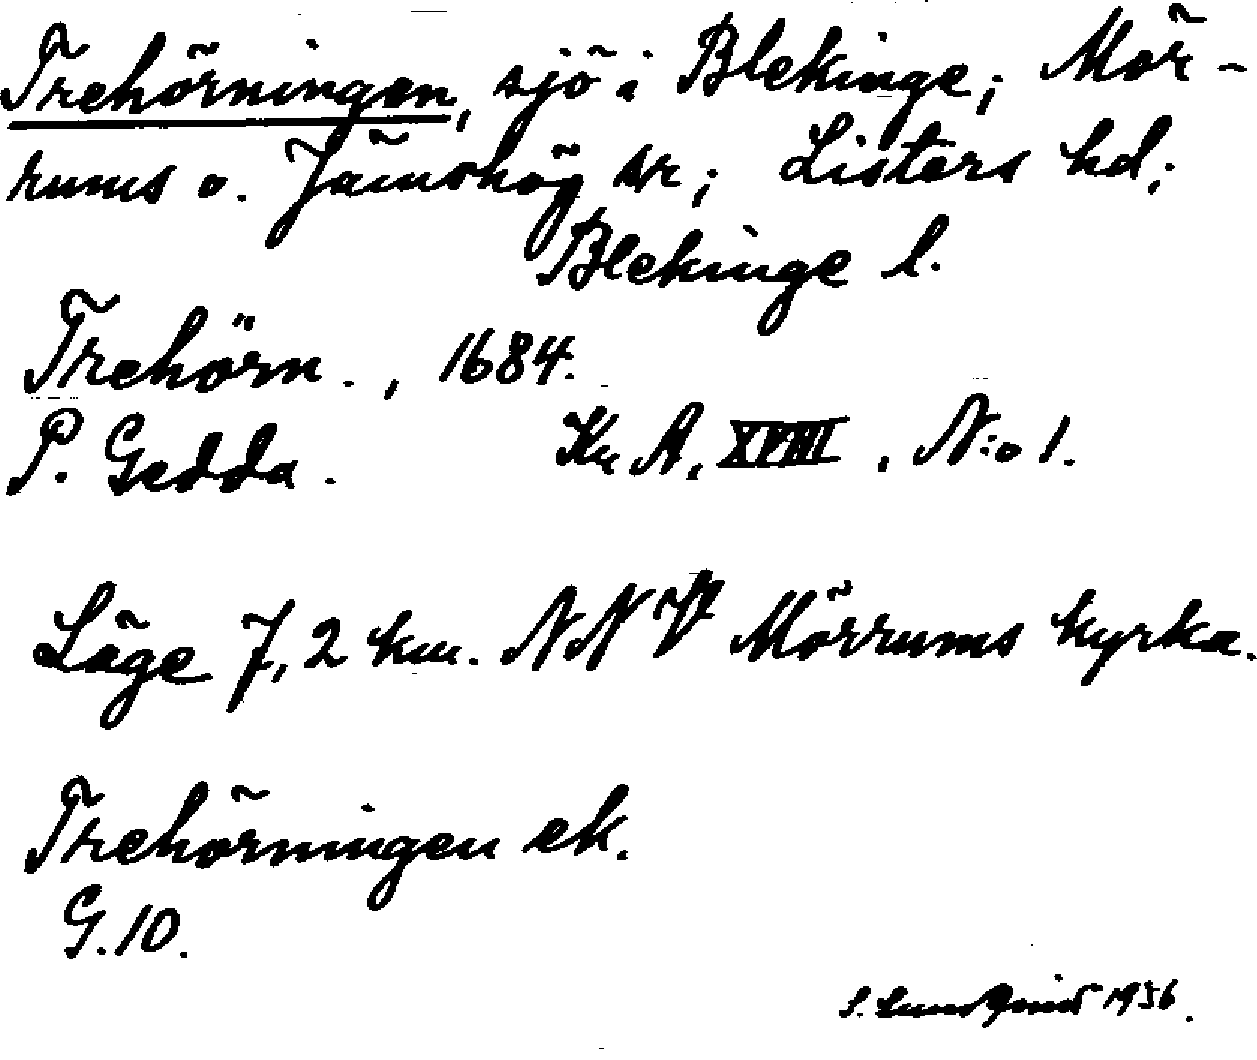 Trehörningen, sjö i Blekinge; Mör-
rums o. Jämshög sr; Listers hd;
Blekinge l.
Trehörn., 1684.
P. Gedda. Kr A, XVIII, N:o 1.
Läge 7,2 km. NNV Mörrums kyrka.
Trehörningen ek.
G.10.
S. Lundqvist 1936.